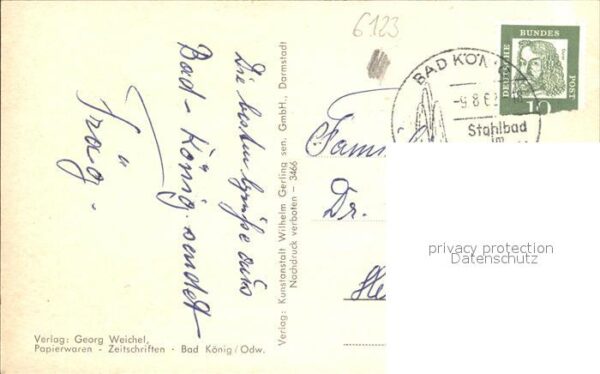 6123
Die besten Grüße aus
Bad-König sendet
Träg.
Verlag: Kunstanstalt Wilhelm Gerling sen. GmbH., Darmstadt
Nachdruck verboten - 3466
DEUTSCHE
BUNDES
POST
10
BAD KÖNIG
Stahlbad
im
Fam
Dr.
privacy protection
Datenschutz
Verlag: Georg Weichel,
Papierwaren - Zeitschriften - Bad König/Odw.